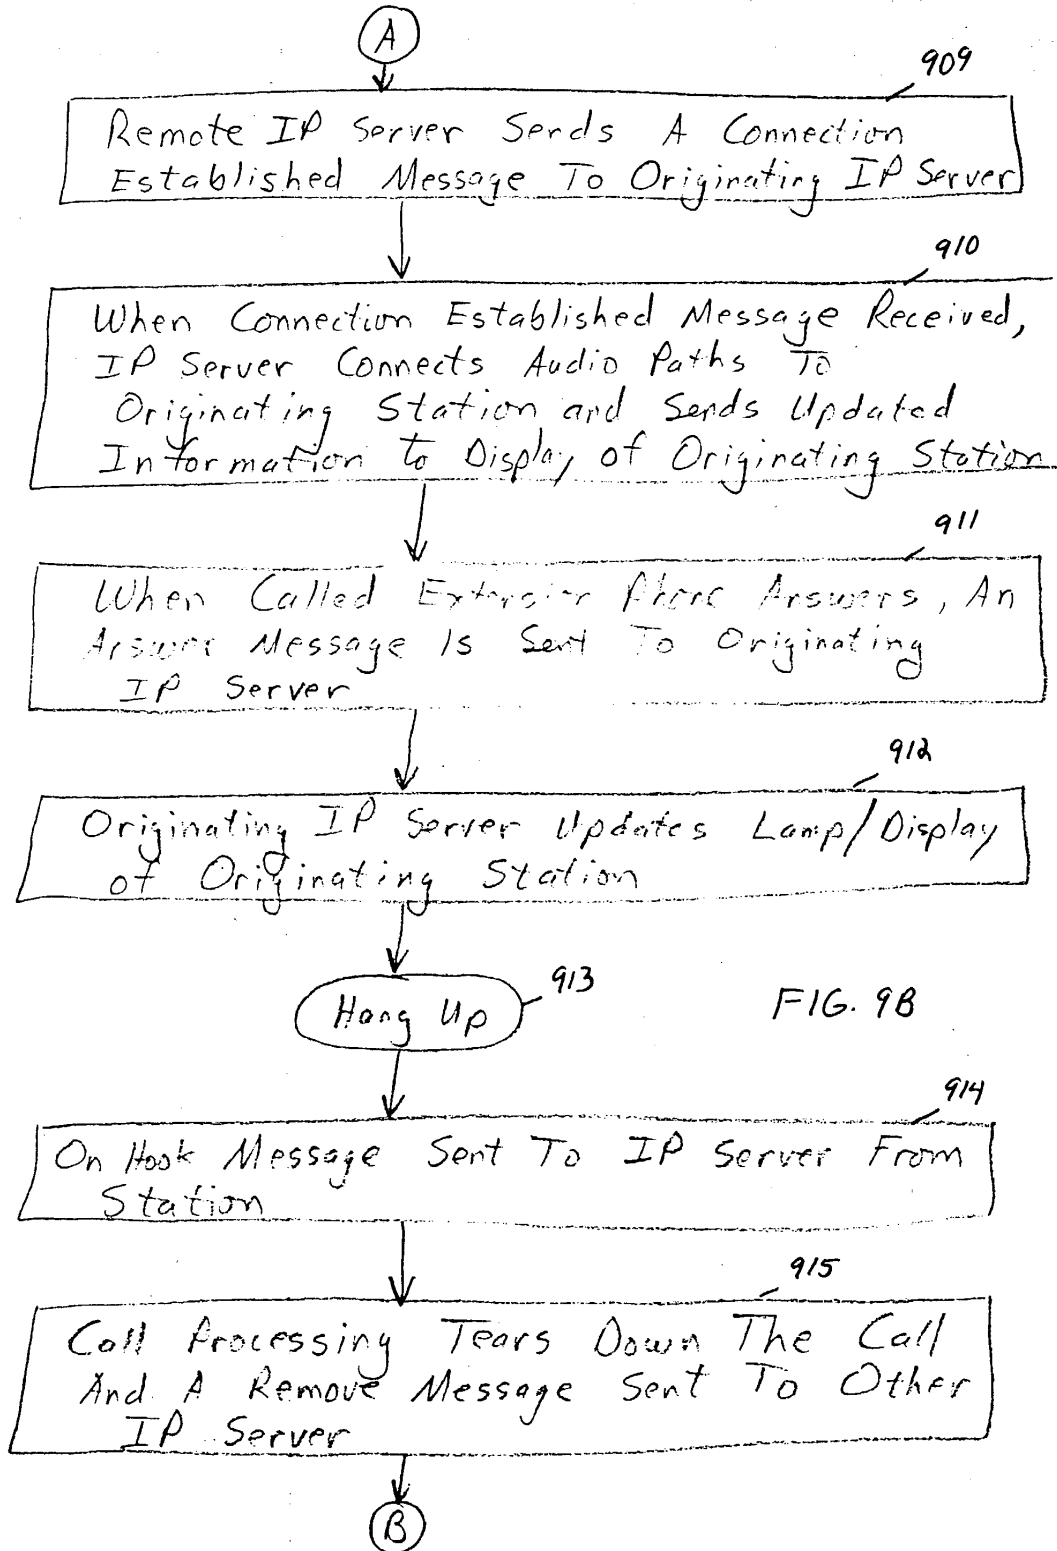 A
909
Remote IP Server Sends A Connection
Established Message To Originating IP Server
910
When Connection Established Message Received,
IP Server Connects Audio Paths To
Originating Station and Sends Updated
Information to Display of Originating Station
911
When Called Extension Phone Answers, An
Answer Message Is Sent To Originating
IP Server
912
Originating IP Server Updates Lamp/Display
of Originating Station
913
Hang Up
FIG. 9B
914
On Hook Message Sent To IP Server From
Station
915
Call Processing Tears Down The Call
And A Remove Message Sent To Other
IP Server
B